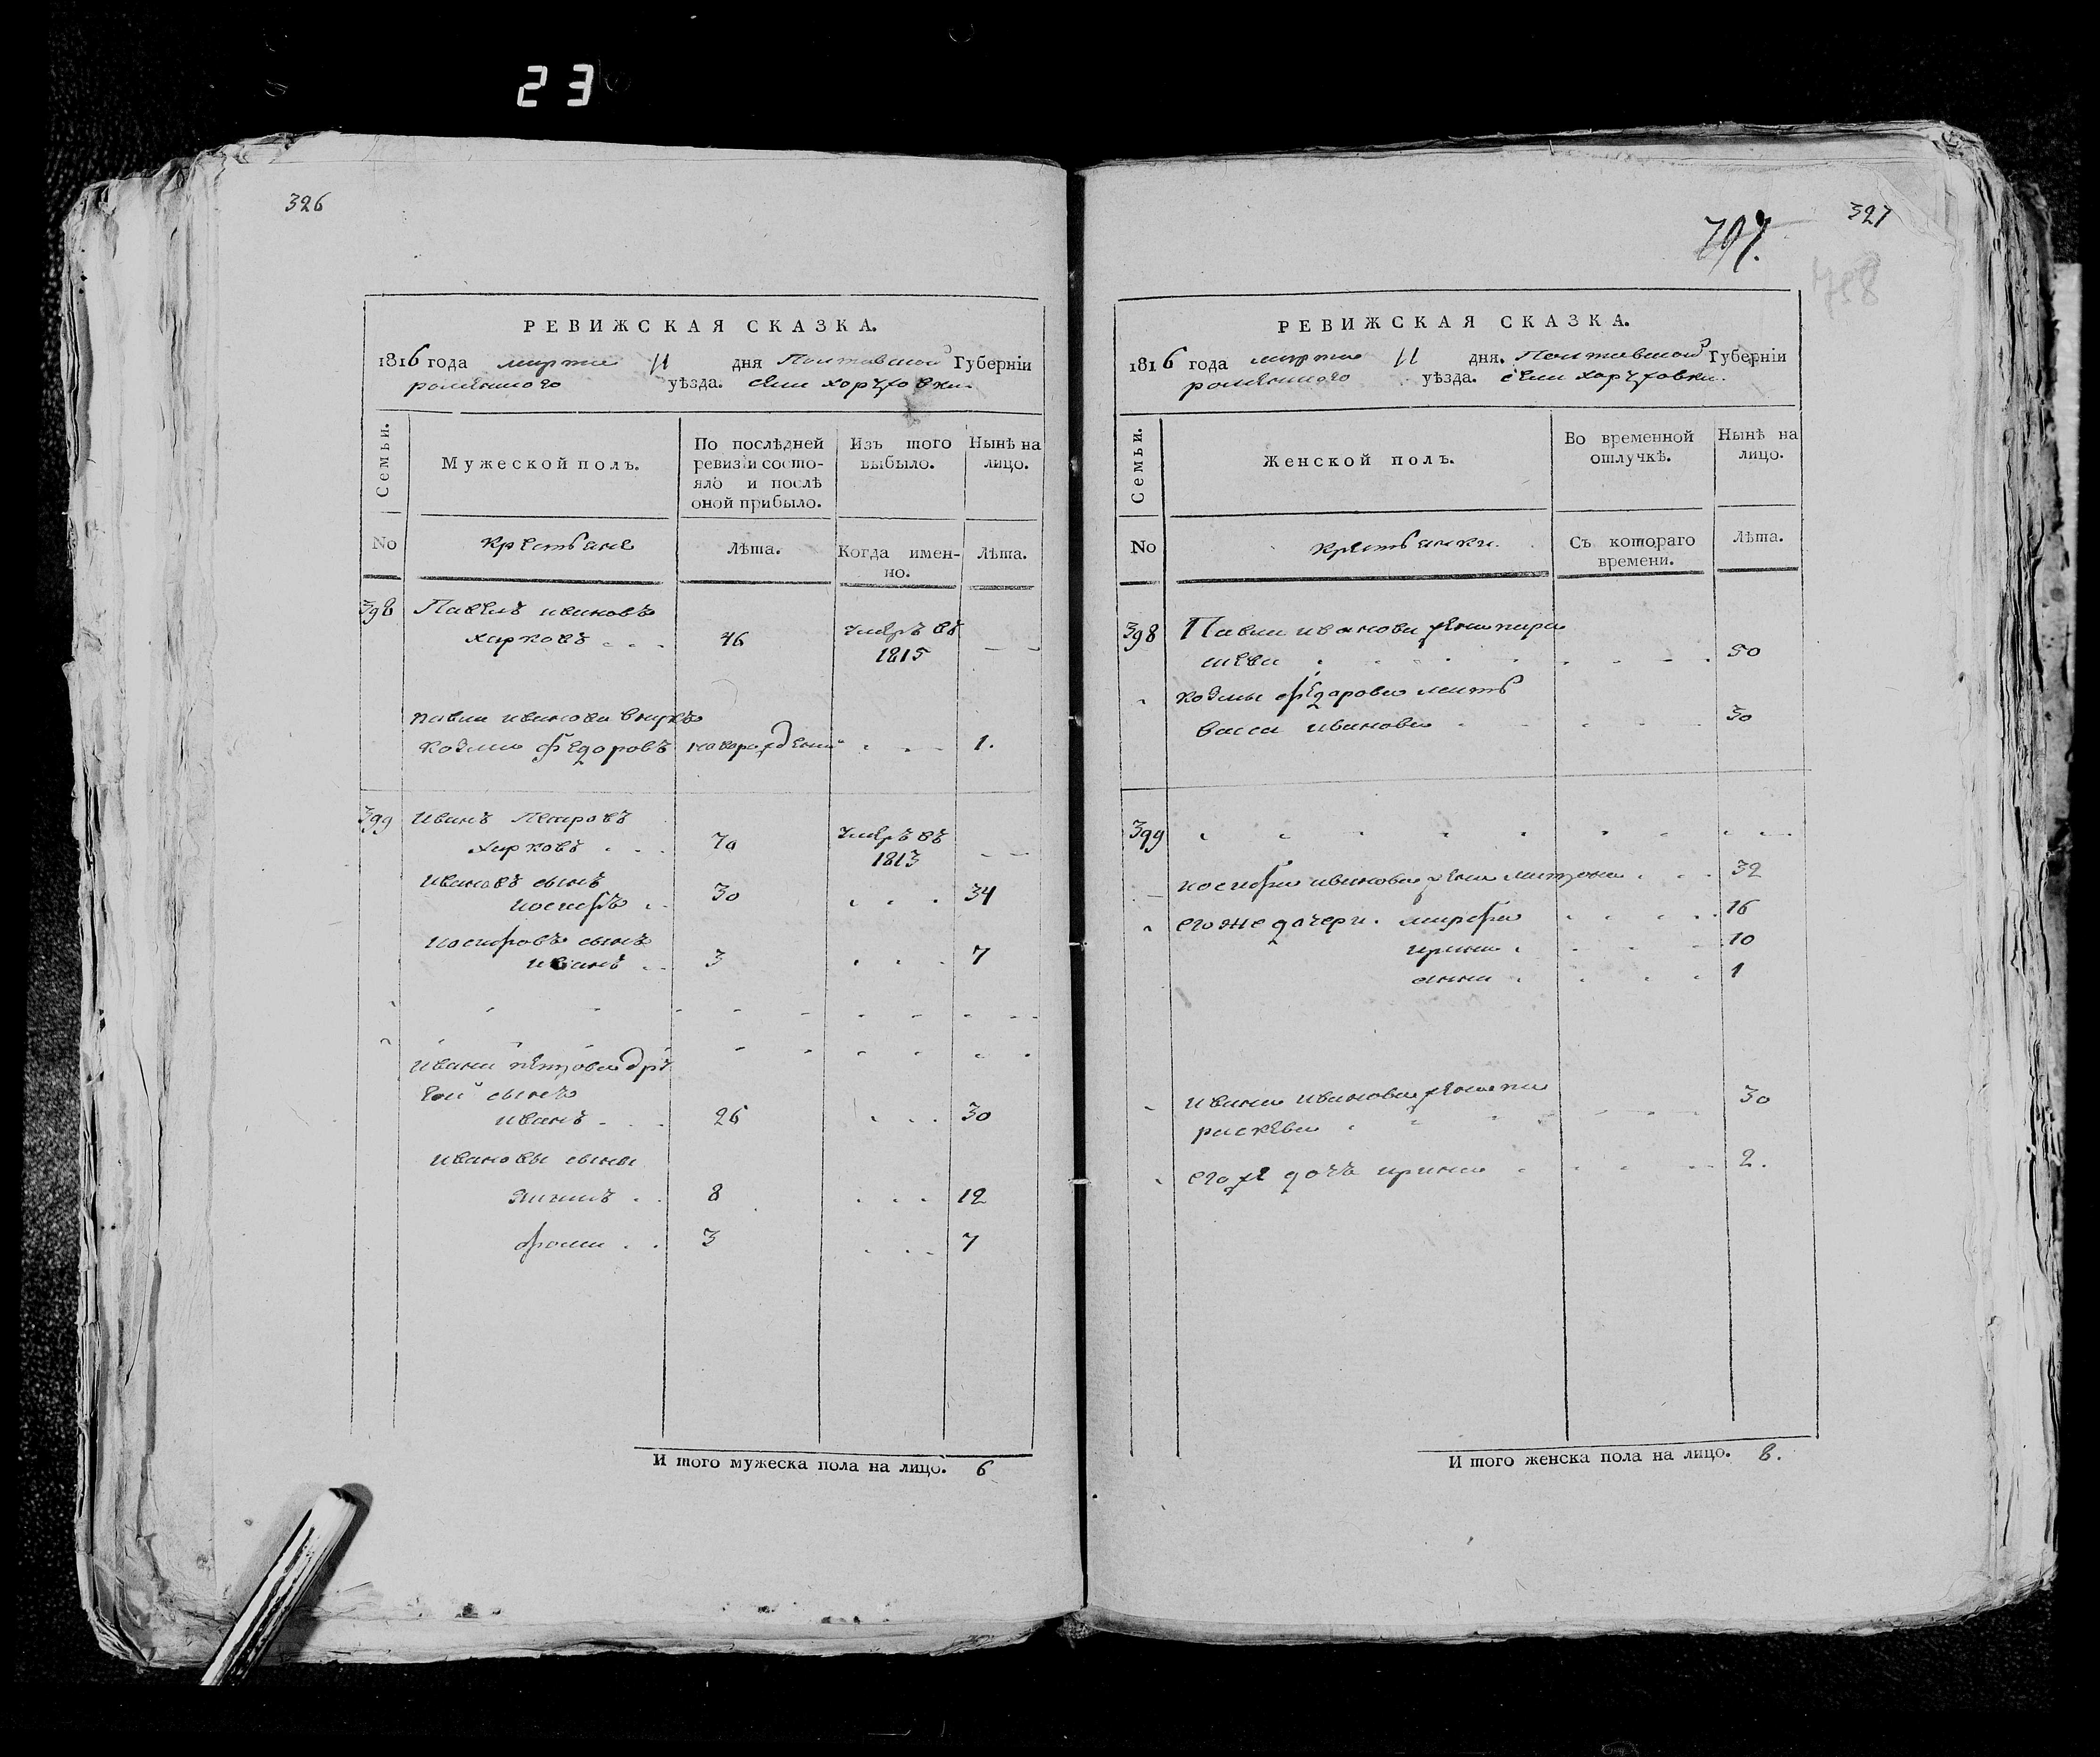 23
326
РЕВИЖСКАЯ СКАЗКА.
1816 года марта 11 дня Полтавской Губерніи
роменского уѣзда. села
Семьи.
Мужеской полъ.
По послѣдней
ревизіи состо-
яло и послѣ
оной прибыло.
Изъ того
выбыло.
Нынѣ на
лицо.
No
крестьяне
Лѣта.
Когда имен-
но.
Лѣта.
398 Павелъ ивановъ
харковъ 46 умеръ въ
1815
павла иванова внукъ
козма федоровъ новорожденый 1.
399 Иванъ Петровъ
харковъ 70 умеръ въ
1813
ивановъ сынъ
иосифъ 30 34
иосифовъ сынъ
иванъ 3 7
ивана петрова
сынъ
иванъ 26 30
ивановы сыны
8 12
фома 3 7
И того мужеска пола на лицо. 6
327
707.
708
РЕВИЖСКАЯ СКАЗКА.
1816 года марта 11 дня. Полтавской Губерніи
роменского уѣзда. села
Семьи.
Женской полъ.
Во временной
отлучкѣ.
Нынѣ на
лицо.
No
крестьянки.
Съ котораго
времени.
Лѣта.
398 Павла иванова жена пара
скева 50
козмы федарова мать
васса иванова 30
399
иосифа иванова жена матрона 32
его же дочери. марфа 16
ирина 10
анна 1
ивана иванова жена па
раскева 30
его же дочь ирина 2.
И того женска пола на лицо. 8.